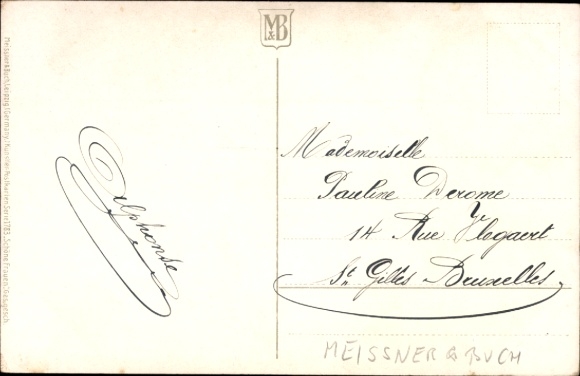 M&B
Meissner & Buch, Leipzig (Germany) Künstler-Postkarten Serie 1785 „Schöne Frauen“ Ges. gesch.
Alphonse
Mademoiselle
Pauline Derome
14 Rue Jr Hogaert
St Gilles Bruxelles
MEISSNER & BUCH